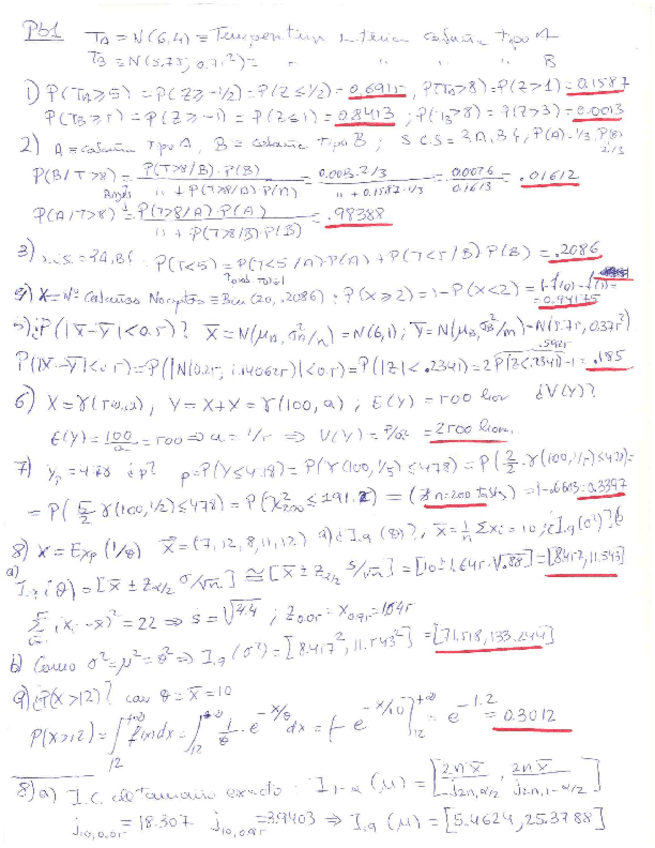 Pb1 T_A = N(6,4) ≡ Temperatura interior cabaña tipo A
T_B ≡ N(5.75; 0.75²) = " " " " B
1) P(T_A≥5) = P(Z≥-1/2) = P(Z≤1/2) = 0.6915, P(T_A>8) = P(Z>1) = 0.1587
P(T_B≥5) = P(Z≥-1) = P(Z≤1) = 0.8413; P(T_B>8) = P(Z>3) = 0.0013
2) A ≡ cabaña Tipo A, B ≡ cabaña Tipo B; S.C.S = {A,B}, P(A)=1/3, P(B) 2/3
P(B/T>8) = P(T>8/B)·P(B) / " + P(T>8/A)·P(A) = 0.0013·2/3 / " + 0.1587·1/3 = 0.0026 / 0.1613 = .01612
Bayes
P(A/T>8) = P(T>8/A)·P(A) / " + P(T>8/B)·P(B) = .98388
3) S.C.S = {A,B} P(T<5) = P(T<5/A)·P(A) + P(T<5/B)·P(B) = .2086
Prob. total
4) X ≡ Nº Cabañas No aptas ≡ Bin(20, .2086); P(X≥2) = 1-P(X<2) = 1-f(0)-f(1) = 0.94175
5) ¿P(|X̄-Ȳ|<0.5)? X̄ ≡ N(μ_A, σ_A²/n) = N(6,1); Ȳ = N(μ_B, σ_B²/m) = N(5.75, 0.375²)
P(|X̄-Ȳ|<0.5) = P(|N(0.25, 1.140625)|<0.5) = P(|Z|<.2341) = 2P(Z<.2341)-1 = .185
.5925
6) X = γ(50,a), Y = X+X = γ(100,a); E(Y) = 500 horas ¿V(Y)?
E(Y) = 100/a = 500 ⇒ a = 1/5 ⇒ V(Y) = P/a² = 2500 horas.
7) y_p = 478 ¿p? p = P(Y≤478) = P(γ(100,1/5)≤478) = P(2/2·γ(100,1/5)≤478) =
= P(5/2 γ(100,1/2)≤478) = P(χ²_200≤191.2) = (n=200 tablas) = 1-.6603 = 0.3397
8) X = Exp(1/θ) X⃗ = (7,12,8,11,12) a) ¿I.9(θ)?, x̄ = 1/n Σxi = 10; ¿I.9(σ²)? b
a) I.9(θ) = [x̄ ± Z_α/2 σ/√n] ≅ [x̄ ± Z_α/2 s/√n] = [10 ± 1.645·√.88] = [8.457, 11.543]
Σ(xi-x̄)² = 22 ⇒ s = √4.4; z0.05 = x0.95 = 1.645
b) Como σ² = μ² = θ² ⇒ I.9(σ²) = [8.457², 11.543²] = [71.518, 133.244]
9) ¿P(X>12)? con θ = x̄ = 10
P(X>12) = ∫₁₂^{+∞} f(x)dx = ∫₁₂^{+∞} 1/θ·e^{-x/θ} dx = [-e^{-x/10}]₁₂^{+∞} = e^{-1.2} = 0.3012
8) a) I.C. de Tamaño exacto: I_{1-α}(μ) = [2n x̄ / j_{2n,α/2}, 2n x̄ / j_{2n,1-α/2}]
j_{10,0.05} = 18.307 j_{10,0.95} = 3.9403 ⇒ I.9(μ) = [5.4624, 25.3788]